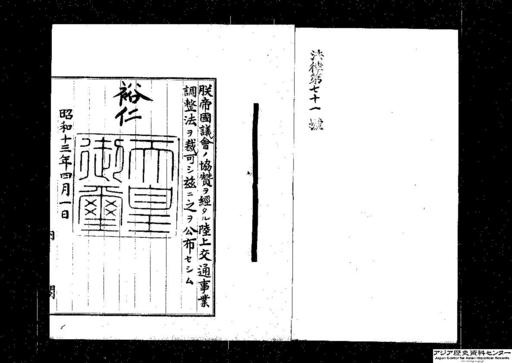 法律第七十一號
朕帝國議會ノ協賛ヲ經タル陸上交通事業
調整法ヲ裁可シ茲ニ之ヲ公布セシム
裕仁
天皇
御璽
昭和十三年四月一日
内閣
アジア歴史資料センター
Japan Center for Asian Historical Records